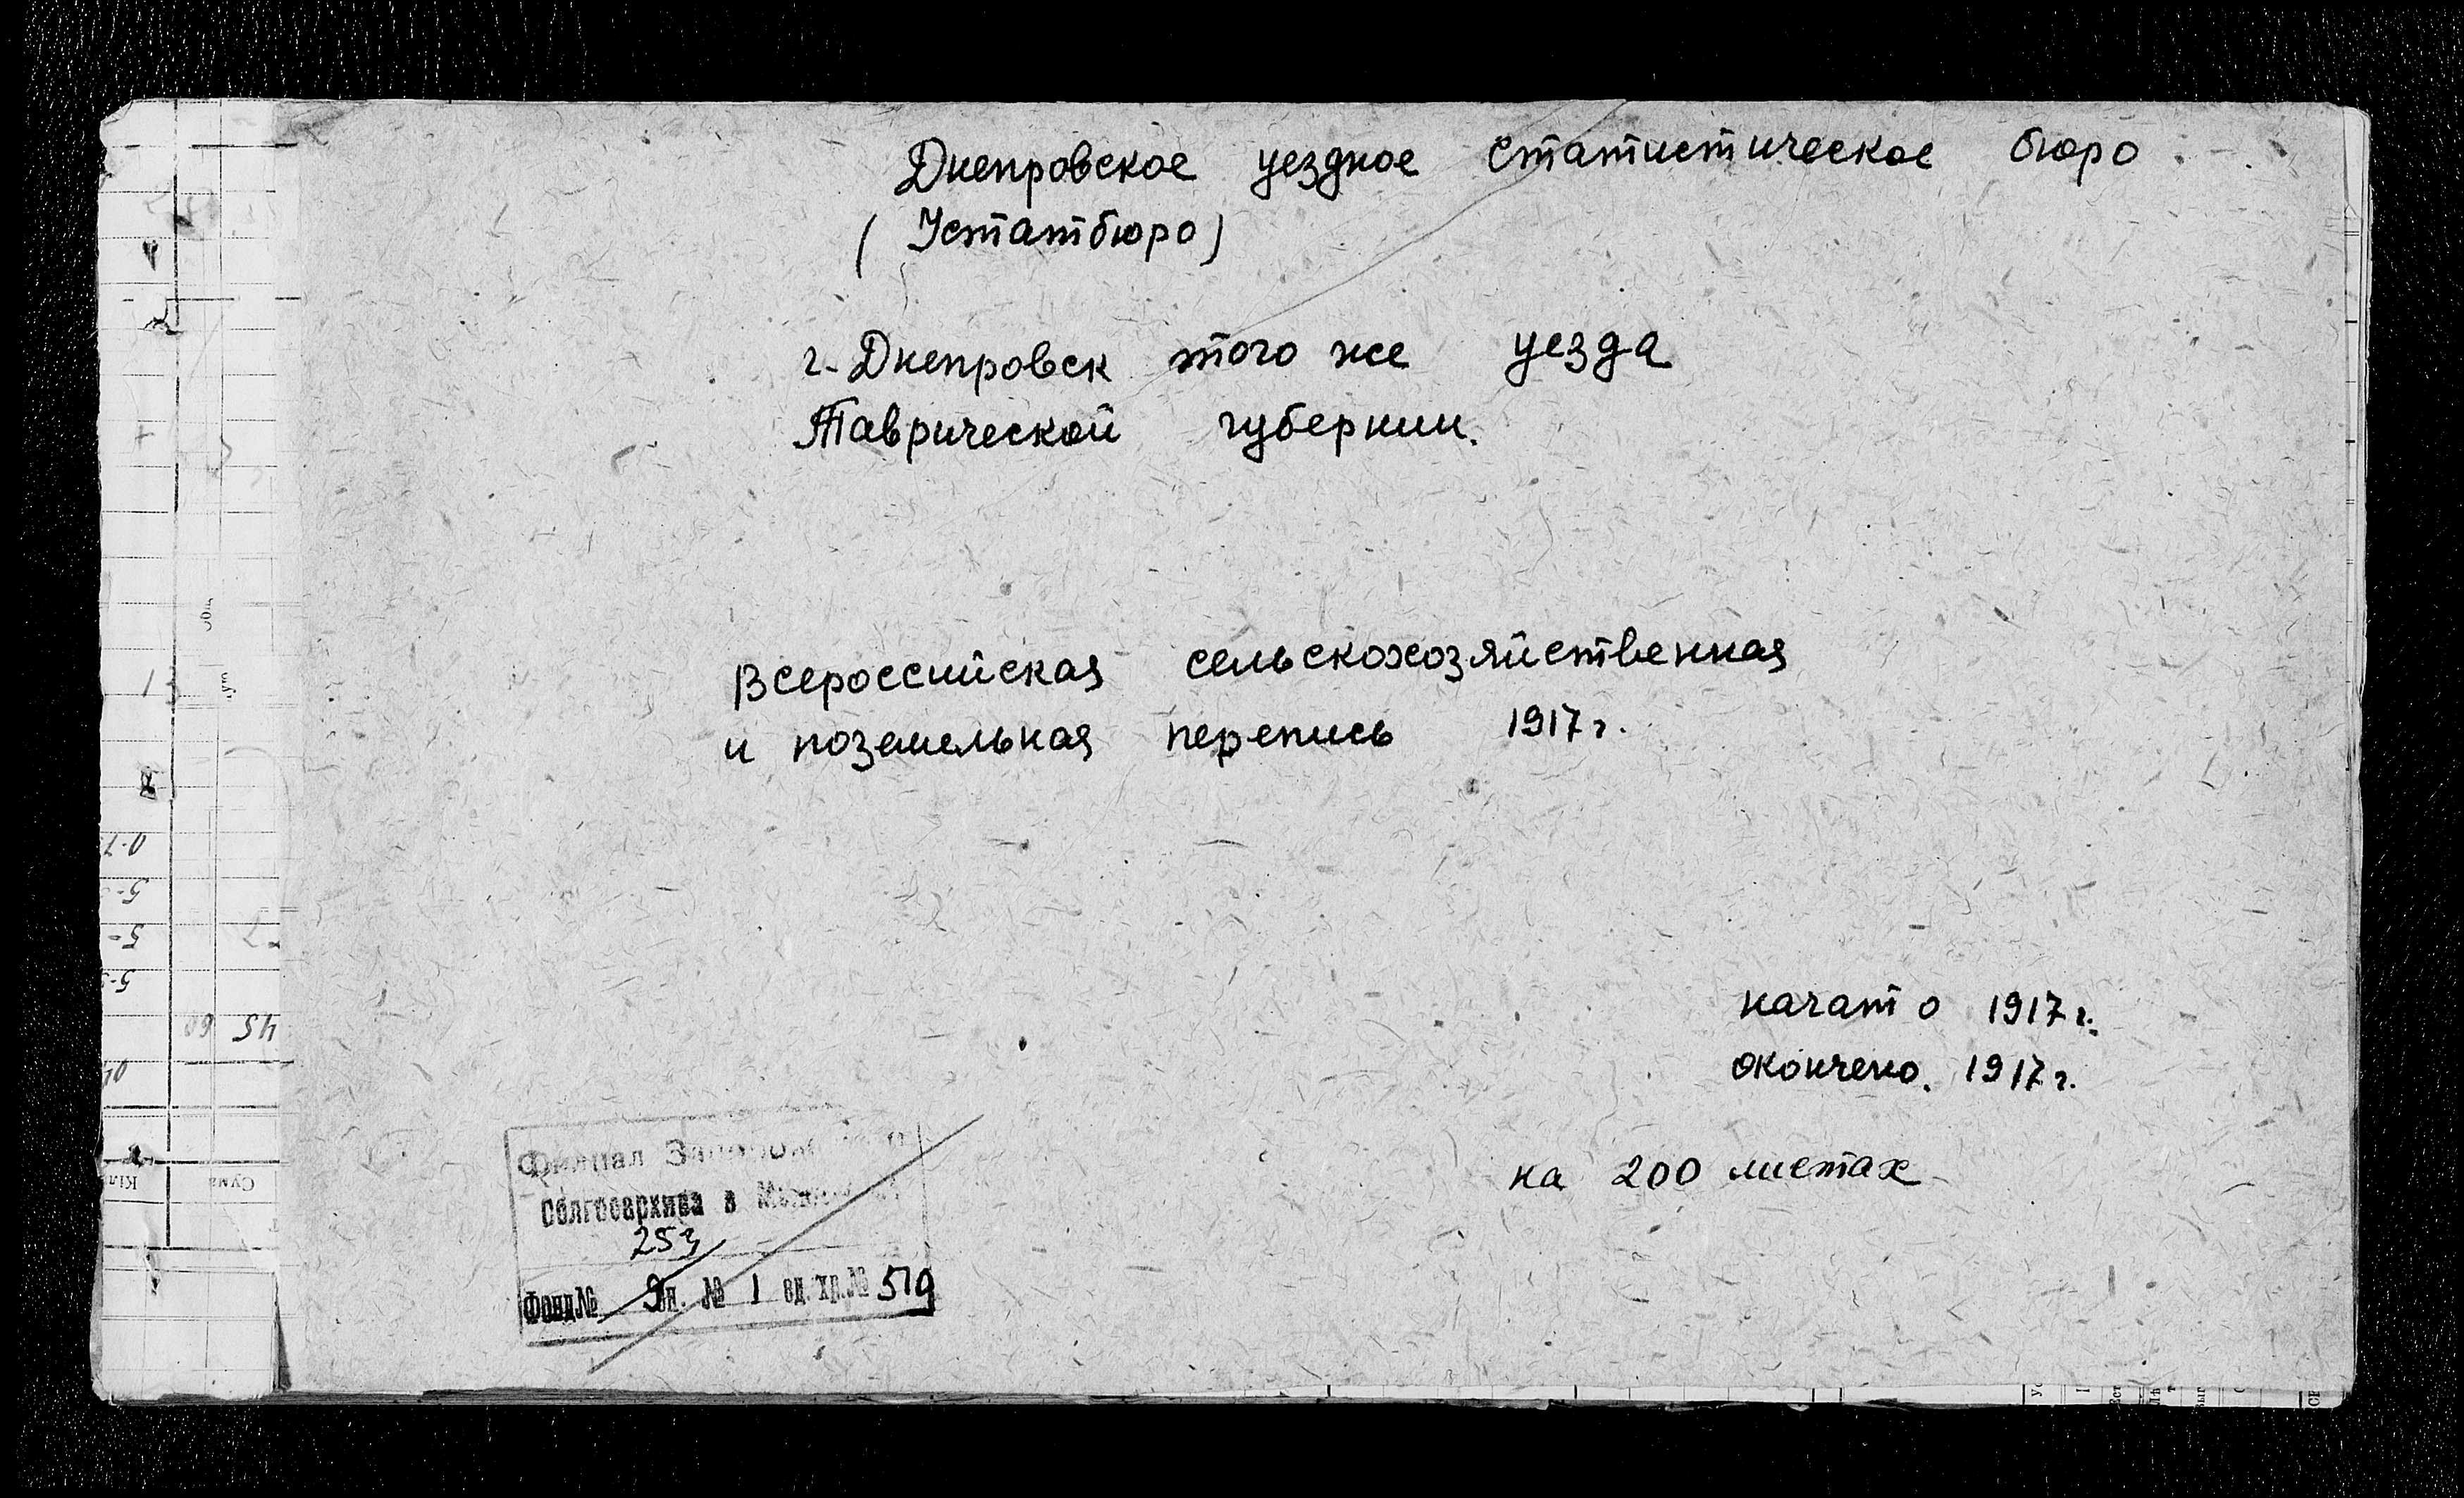 Днепровское уездное статистическое бюро
(Устатбюро)
г. Днепровск того же уезда
Таврической губернии.
Всероссийская сельскохозяйственная
и поземельная перепись 1917 г.
начато 1917 г.
окончено. 1917 г.
на 200 листах
Филиал
Облгосархива в
253
Фонд № оп. № 1 ед. хр. № 519
45 60
Сума